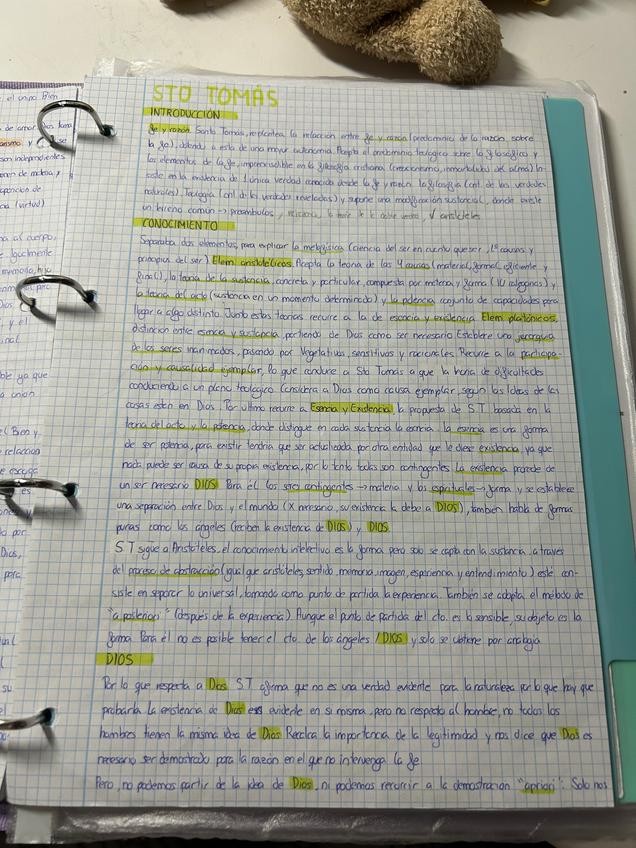 el unino Bien
de amor. Dios
son independientes
(virtud)
al cuerpo,
Igualmente
memoria, hijo
y el
ble ya que
a anion
el Bien y
relacion
por
Dios,
para
su
STO TOMÁS
INTRODUCCIÓN
fe y razón. Santo Tomás, replantea la relacion entre fe y razon (predominio de la razon sobre
la fe), dotando a esta de una mayor autonomia. Acepta el predominio teologico sobre lo filosofico y
los elementos de la fe, imprescindible en la filosofia cristiana (creacionismo, inmortalidad del alma) In-
siste en la existencia de 1 unica verdad conocida desde la fe y razon. la filosofia (cnt. de las verdades
naturales), Teologia (cnt de las verdades reveladas) y supone una modificacion sustancial, donde existe
un terreno común → preambulos, rechaza la teoria de la doble verdad, Aristoteles
CONOCIMIENTO
Separaba dos elementos, para explicar la metafisica (ciencia del ser en cuanto que ser, 1º causas y
principios del ser) Elem. aristotélicos. Acepta la teoria de las 4 causas (material, formal, eficiente y
final), la teoria de la sustancia, concreta y particular, compuesta por materia y forma (10 categorias) y
la teoria del acto (sustancia en un momento determinado) y la potencia conjunto de capacidades para
llegar a algo distinto. Junto estas teorias recurre a la de esencia y existencia. Elem platónicos,
distincion entre esencia y sustancia, partiendo de Dios como ser necesario. Establece una jerarquia
de los seres inanimados, pasando por Vegetativos, sensitivos y racionales. Recurre a la participa-
cion y causalidad ejemplar, lo que conduce a Sto Tomas a que la haria de dificultades
conduciendo a un plano teologico. Considera a Dios como causa ejemplar, según las ideas de las
cosas estén en Dios. Por ultimo recurre a Esencia y Existencia, la propuesta de S.T. basada en la
teoria del acto y la potencia, donde distingue en cada sustancia la esencia. la esencia es una forma
de ser potencia, para existir tendria que ser actualizada por otra entidad que le diese existencia, ya que
nada puede ser causa de su propia existencia, por lo tanto todas son contingentes. La existencia procede de
un ser necesario DIOS. Para él los seres contingentes → materia y los espirituales → forma y se establece
una separación entre Dios y el mundo (X necesario, su existencia la debe a DIOS), también habla de formas
puras como los angeles (reciben la existencia de DIOS) y DIOS.
S T sigue a Aristoteles, el conocimiento intelectivo es la forma pero solo se capta con la sustancia, a traves
del proceso de abstracción (igual que aristoteles, sentido, memoria, imagen, experiencia y entendimiento) este con-
siste en separar lo universal, tomando como punto de partida la experiencia. También se adopta el metodo de
"a posteriori" (después de la experiencia). Aunque el punto de partida del cto. es lo sensible, su objeto es la
forma. Para él no es posible tener el cto. de los ángeles / DIOS y solo se obtiene por analogia
DIOS
Por lo que respecta a Dios S.T afirma que no es una verdad evidente para la naturaleza por lo que hay que
probarla. La existencia de Dios es evidente en si misma, pero no respecto al hombre, no todos los
hombres tienen la misma idea de Dios. Recalca la importancia de la legitimidad y nos dice que Dios es
necesario ser demostrado para la razon en el que no intervenga la fe
Pero, no podemos partir de la idea de Dios, ni podemos recurrir a la demostracion "apriori". Solo nos